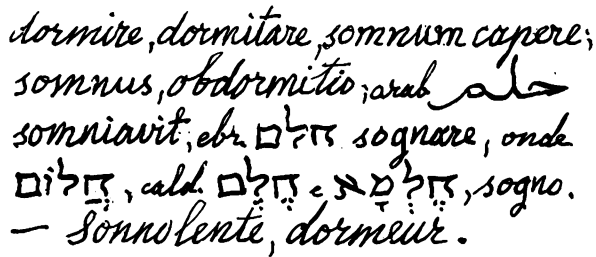 dormire, dormitare, somnum capere;
somnus, obdormitio; arab حلم
somniavit; ebr. חלם sognare, onde
חֲלוֹם, cald. חֱלֵם e חֶלְמָא, sogno.
— Sonnolente, dormeur.